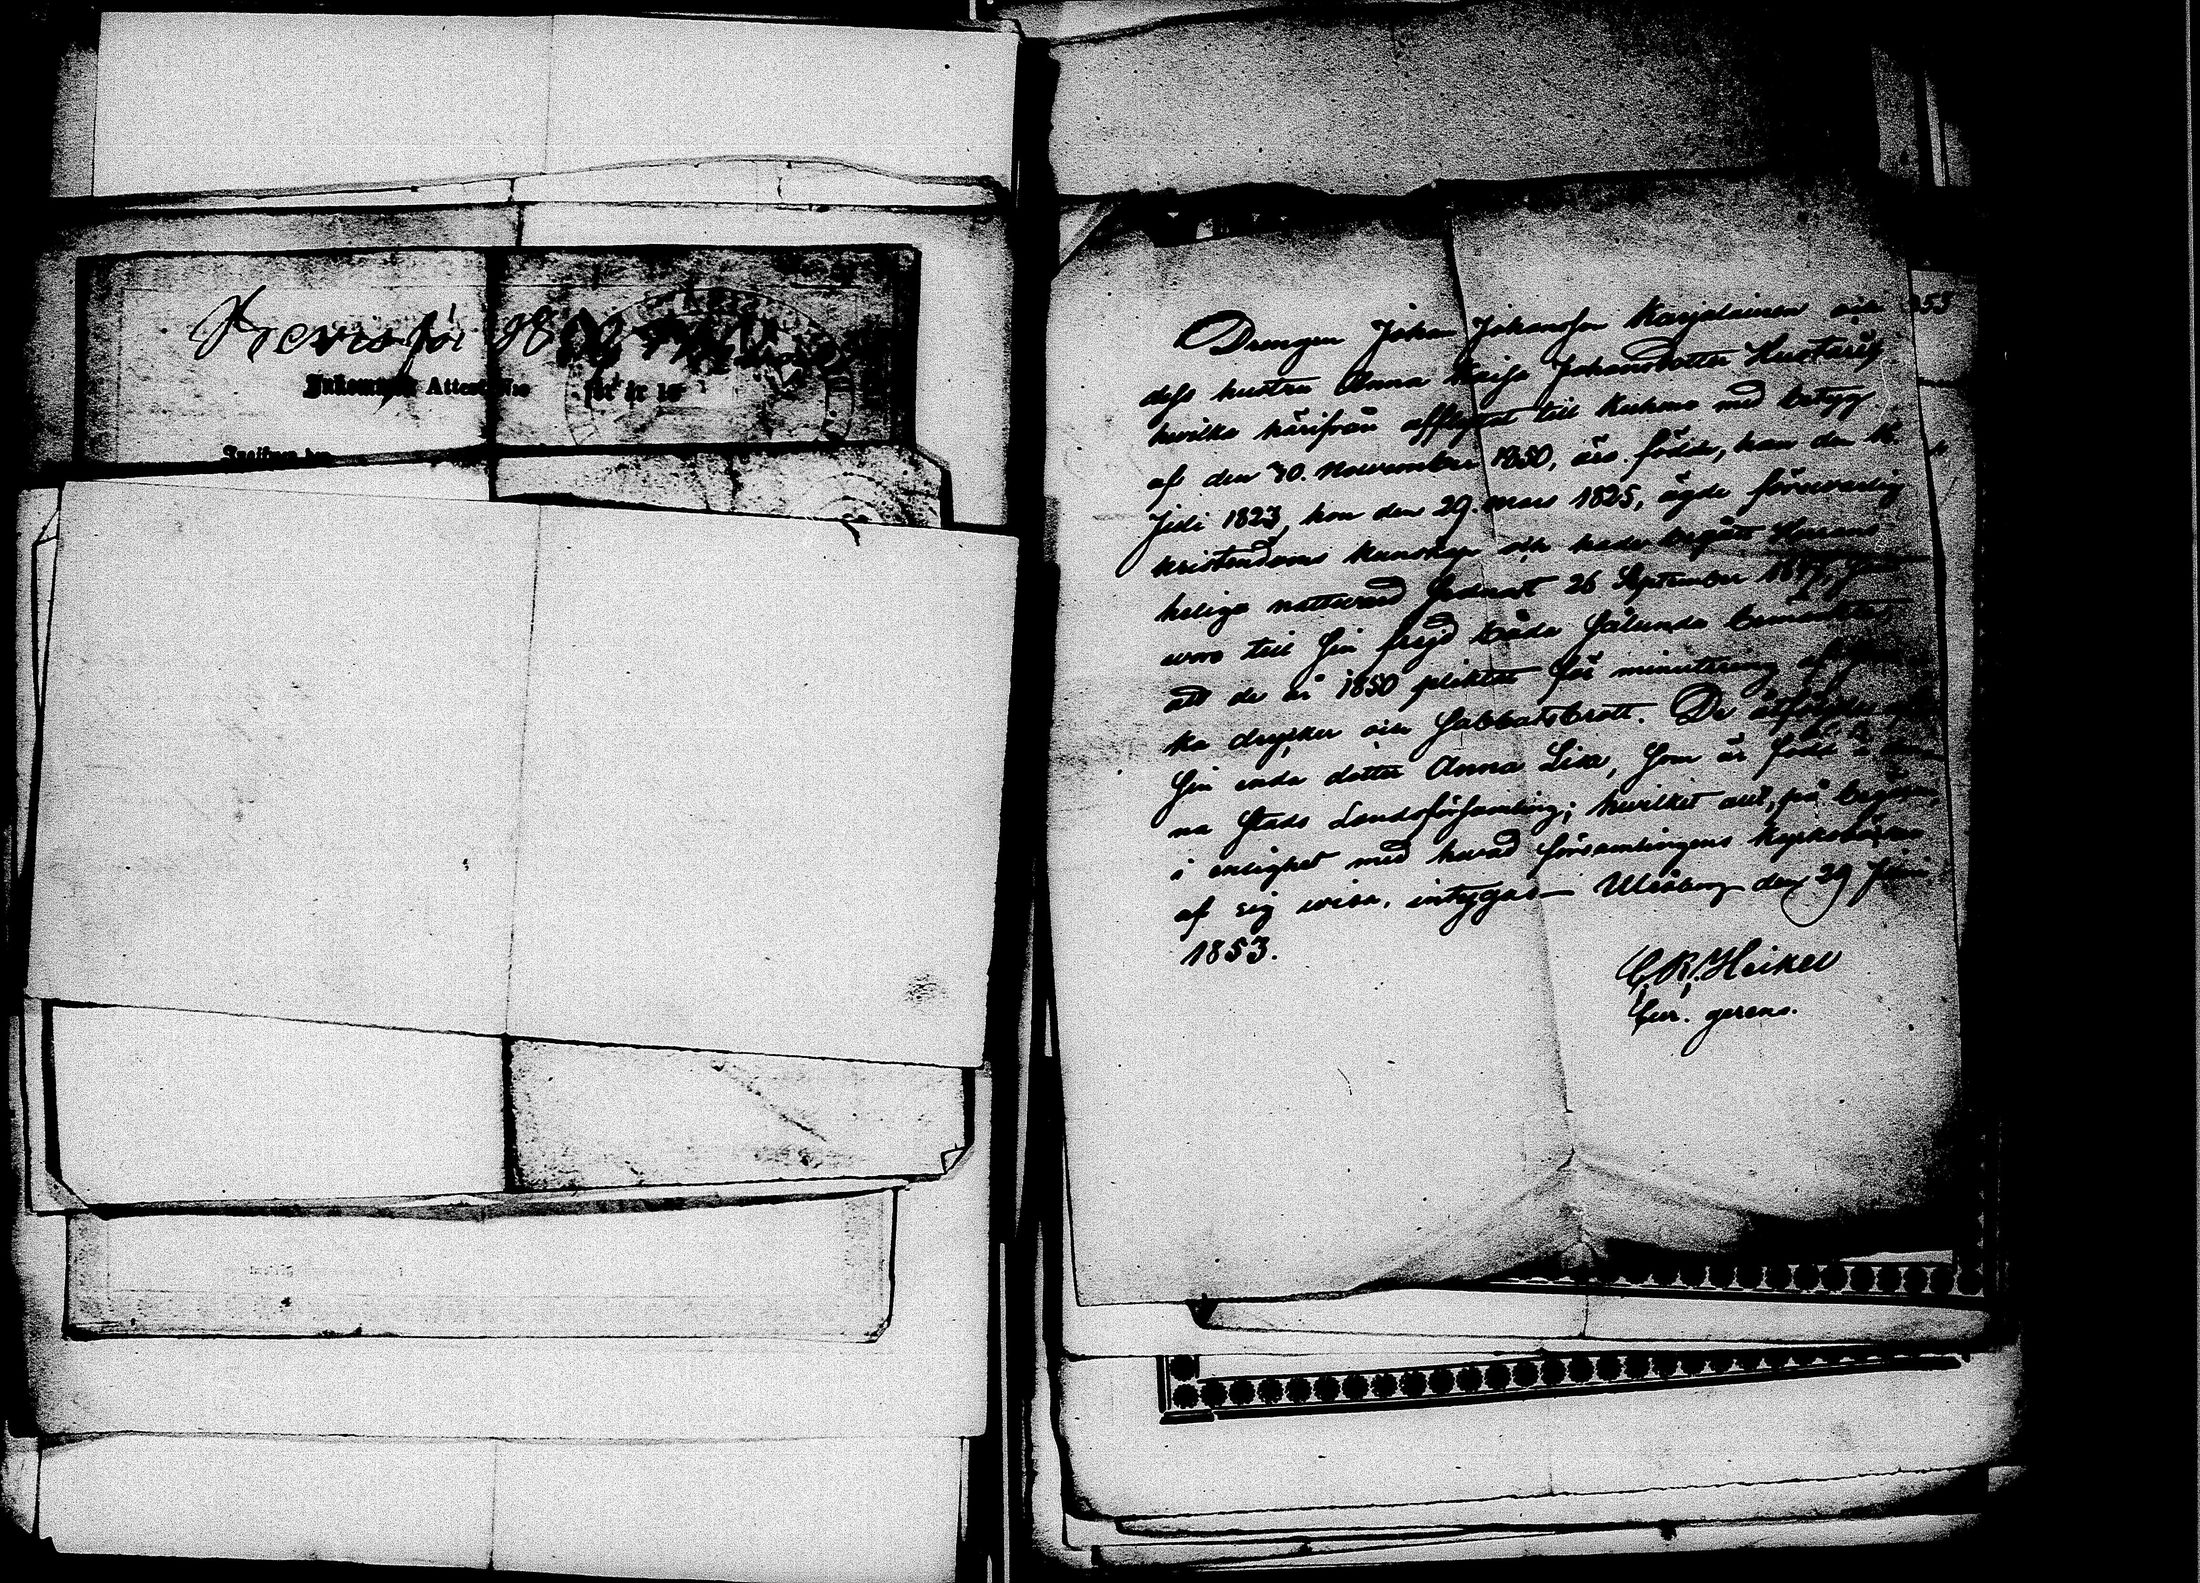 Bevis för 18
Inkomna Attest No för år 18
Drengen Johan Johansson Karjalainen och
dess hustru Anna Kaisa Johansdotter Kustarig
hvilka härifrån afflyttat till Kuhmo med betyg
af den 30. November 1850, äro födde, han den 16.
Juli 1823, hon den 29. Mars 1825, ägde försvarlig
kristendoms kunskap och hade begått Herrans
heliga nattvard sednast 26 September 1847, 
woro till sin frejd både sålunda bemärkta,
att de år 1850 pliktat för minutering af
ka drycker och sabbatsbrott. De åtföljdes af
sin enda dotter Anna Lisa, som är född i
na Stads Landsförsamling; hvilket allt, på begäran,
i enlighet med hvad församlingens kyrkoböcker
af sig wisa, intygas Uleåborg den 29 Juni
1853.
C. R. Heikel
Cur. gerens.